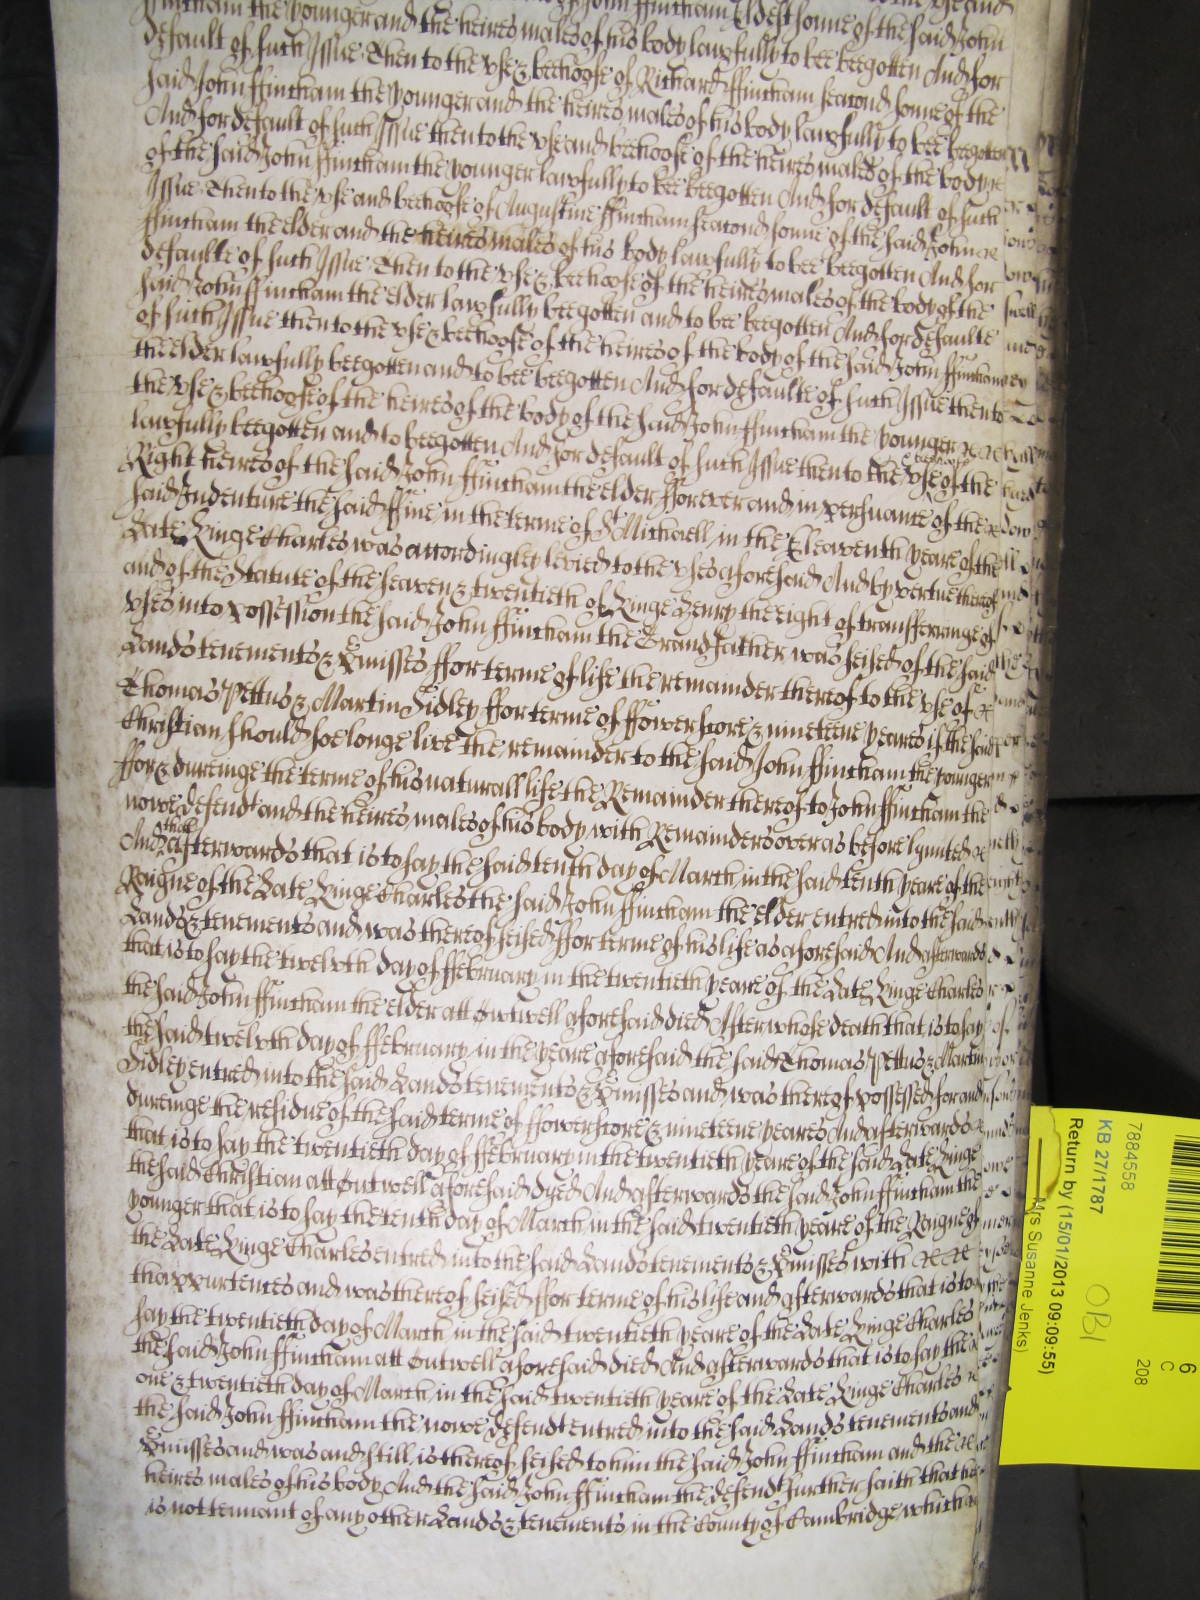 ffincham the younger and the heires males of his body lawfully to bee beegotten And for
default of such Issue Then to the vse & behoofe of Richard ffincham second sonne of the
said John ffincham the younger and the heires males of his body lawfully to bee beegotten
And for default of such Issue then to the vse and behoofe of the heires males of the body
of the said John ffincham the younger lawfully to bee beegotten And for default of such
Issue Then to the vse and behoofe of Augustine ffincham second sonne of the said John
ffincham the elder and the heires males of his body lawfully to bee beegotten And for
defaulte of such Issue Then to the vse & behoofe of the heires males of the body of the
said John ffincham the elder lawfully beegotten and to bee beegotten And for defaulte
of such Issue then to the vse & behoofe of the heires of the body of the said John ffincham
the elder lawfully beegotten and to bee beegotten And for defaulte of such Issue then to
the vse & behoofe of the heires of the body of the said John ffincham the younger
lawfully beegotten and to beegotten And for default of such Issue then to the vse & behoofe of the
Right heires of the said John ffincham the elder fforever and in persuance of the
said Indenture the said ffine in the terme of St Michaell in the Eleaventh yeare of the
Late Kinge Charles was accordingley levied to the vses aforesaid And by vertue thereof
and of the Statute of the seaven & twentieth of Kinge Henry the eight of transferringe of
vses into possession the said John ffincham the Grandfather was seised of the said
Lands tenements & Premisses ffor terme of life the remainder thereof to the vse of
Thomas Pettus & Martin Sidley ffor terme of ffowerscore & nineteene yeares if the said
Christian should soe longe live the remainder to the said John ffincham the younger
ffor & dureinge the terme of his naturall life the Remainder thereof to John ffincham the
nowe defendt and the heires males of his body with Remainders over as before lymited
And afterwards that is to say the said tenth day of March in the said tenth yeare of the
Reigne of the Late Kinge Charles the said John ffincham the elder entred into the said
Lands & tenements and was thereof seised ffor terme of his life as aforesaid And afterwards
that is to say the twelvth day of ffebruary in the twentieth yeare of the Late Kinge Charles
the said John ffincham the elder att Owtwell aforesaid died After whose death that is to say
the said twelvth day of ffebruary in the yeare aforesaid the said Thomas Pettus & Martin
Sidley entred into the said Lands tenements & Premisses and was thereof possessed for and
dureinge the residue of the said terme of ffowerscore & nineteene yeares And afterwards
that is to say the twentieth day of ffebruary in the twentieth yeare of the said Late Kinge
the said Christian att Outwell aforesaid dyed And afterwards the said John ffincham the
younger that is to say the tenth day of March in the said twentieth yeare of the Reigne of
the Late Kinge Charles entred into the said Lands tenements & Premisses with
thappurtences and was thereof seised ffor terme of his life and afterwards that is to
say the twentieth day of March in the said twentieth yeare of the Late Kinge Charles
the said John ffincham att Outwell aforesaid died And afterwards that is to say the
one & twentieth day of March in the said twentieth yeare of the Late Kinge Charles
the said John ffincham the nowe defendt entred into the said Lands tenements and
Premisses and was and still is thereof seised to him the said John ffincham and the
heires males of his body And the said John ffincham the defendt further saith that hee
is not tennant of any other Lands & tenements in the County of Cambridge which
7884558
KB 27/1787
Return by (15/01/2013 09:09:55)
Mrs Susanne Jenks)
OBI
6
C
208